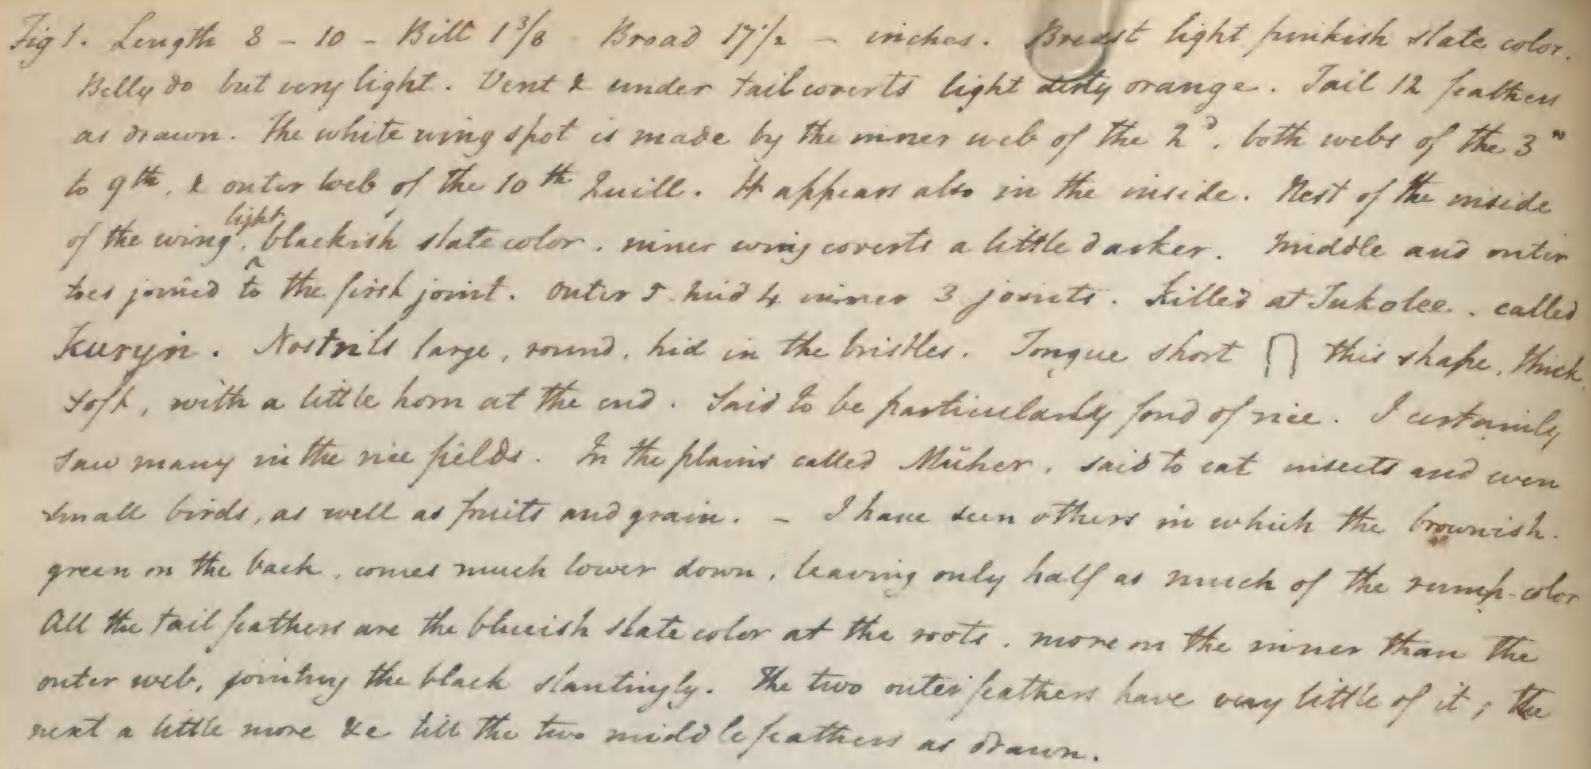 Fig 1. Length 8 - 10 - Bill 1 3/8 - Broad 17 1/2 - inches. Breast light pinkish slate color.
Belly do but very light. Vent & under tail coverts light dirty orange. Tail 12 feathers
as drawn. The white wing spot is made by the inner web of the 2d, both webs of the 3d
to 9th, & outer web of the 10th Quill. It appears also in the inside. Rest of the inside
of the wing, light blackish slate color. inner wing coverts a little darker. Middle and outer
toes joined to the first joint. Outer 5 mid 4 inner 3 joints. Killed at Tukolee. called
Nostrils large, round, hid in the bristles. Tongue short this shape, thick
soft, with a little horn at the end. Said to be particularly fond of rice. I certainly
saw many in the rice fields. In the plains called Müher, said to eat insects and even
small birds, as well as fruits and grain. - I have seen others in which the brownish-
green on the back, comes much lower down, leaving only half as much of the rump-color
All the tail feathers are the blueish slate color at the roots, more on the inner than the
outer web, jointing the black slantingly. The two outer feathers have very little of it; the
next a little more &c till the two middle feathers as drawn.